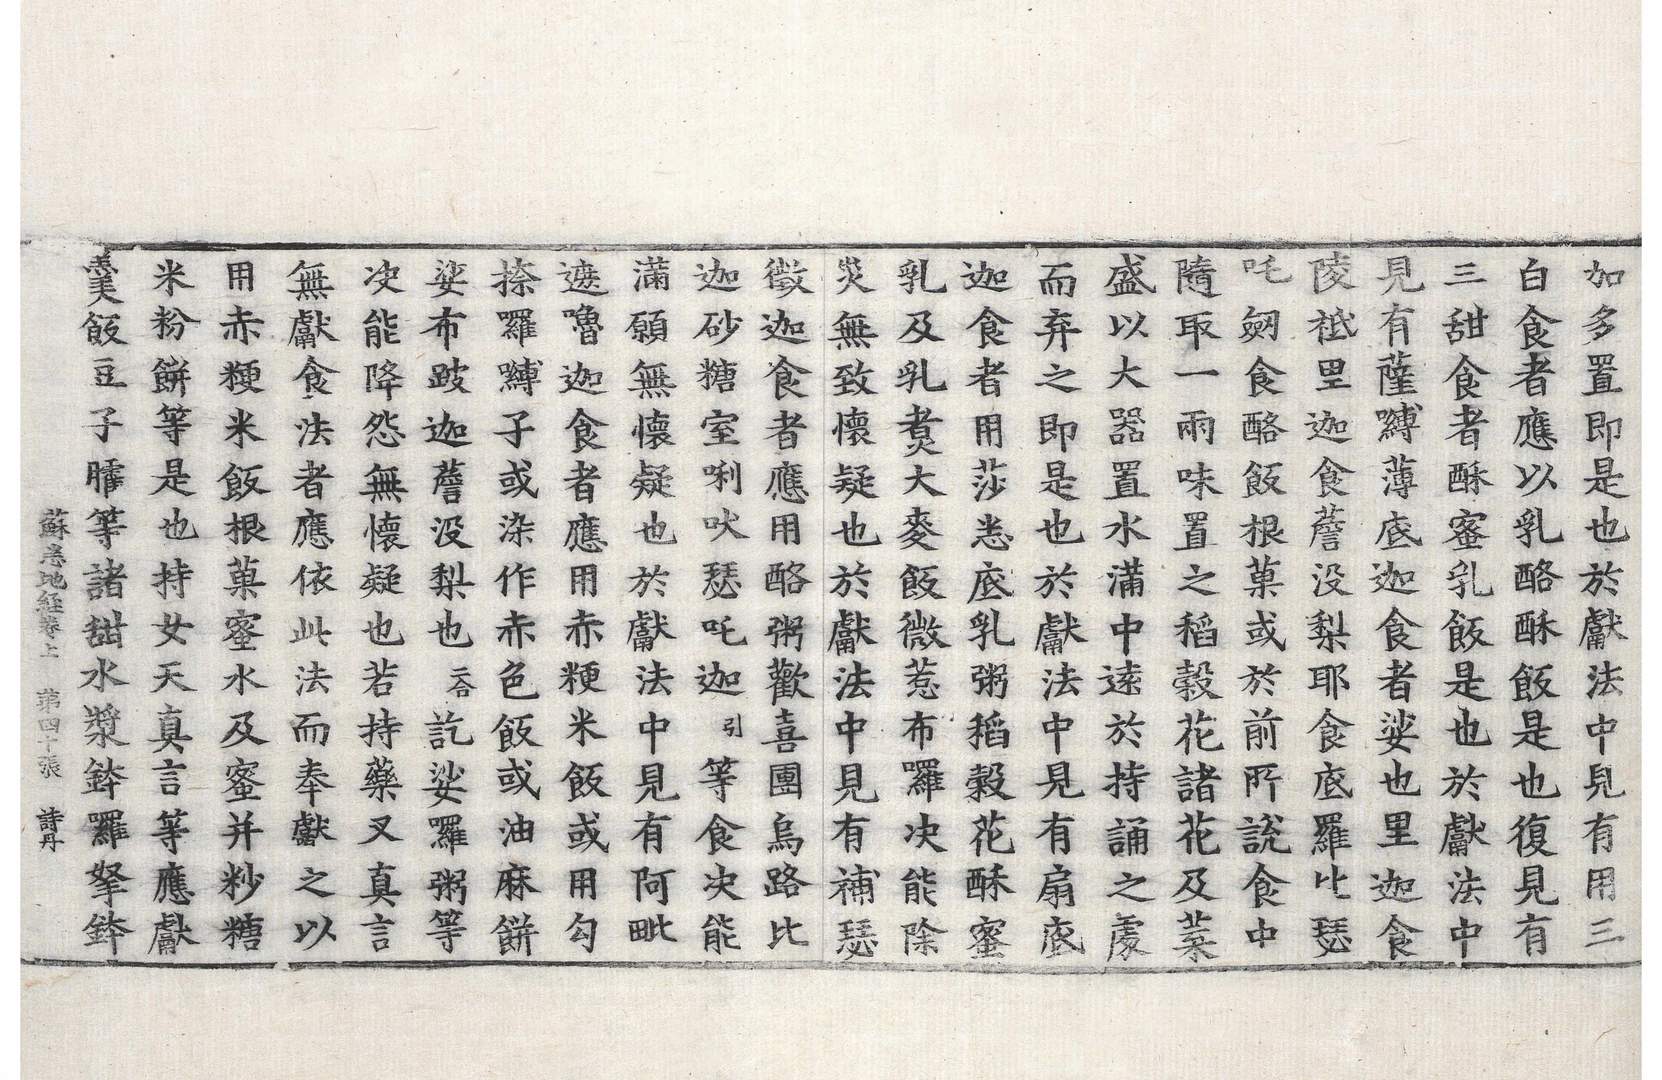 加多置即是也於獻法中見有用三
白食者應以乳酪酥飯是也復見有
三甜食者酥蜜乳飯是也於獻法中
見有薩嚩薄底迦食者娑也里迦食
陵祗里迦食薝没梨耶食底羅比瑟
吒劒食酪飯根菓或於前所說食中
隨取一兩味置之稻糓花諸花及菜
盛以大器置水滿中遠於持誦之處
而弃之即是也於獻法中見有扇底
迦食者用莎悉底乳粥稻糓花酥蜜
乳及乳煮大麥飯微惹布羅决能除
災無致懷疑也於獻法中見有補瑟
徵迦食者應用酪粥歡喜團烏路比
迦砂糖室唎吠瑟吒迦引等食决能
滿願無懷疑也於獻法中見有阿毗
遮嚕迦食者應用赤粳米飯或用勾
捺囉嚩子或染作赤色飯或油麻餅
娑布跛迦薝没梨也二合訖娑囉粥等
决能降怨無懷疑也若持藥叉真言
無獻食法者應依此法而奉獻之以
用赤粳米飯根菓蜜水及蜜并粆糖
米粉餅等是也持女天真言等應獻
羹飯豆子臛等諸甜水漿鉢囉拏鉢
蘇悉地經卷上 第四十張 詩丹